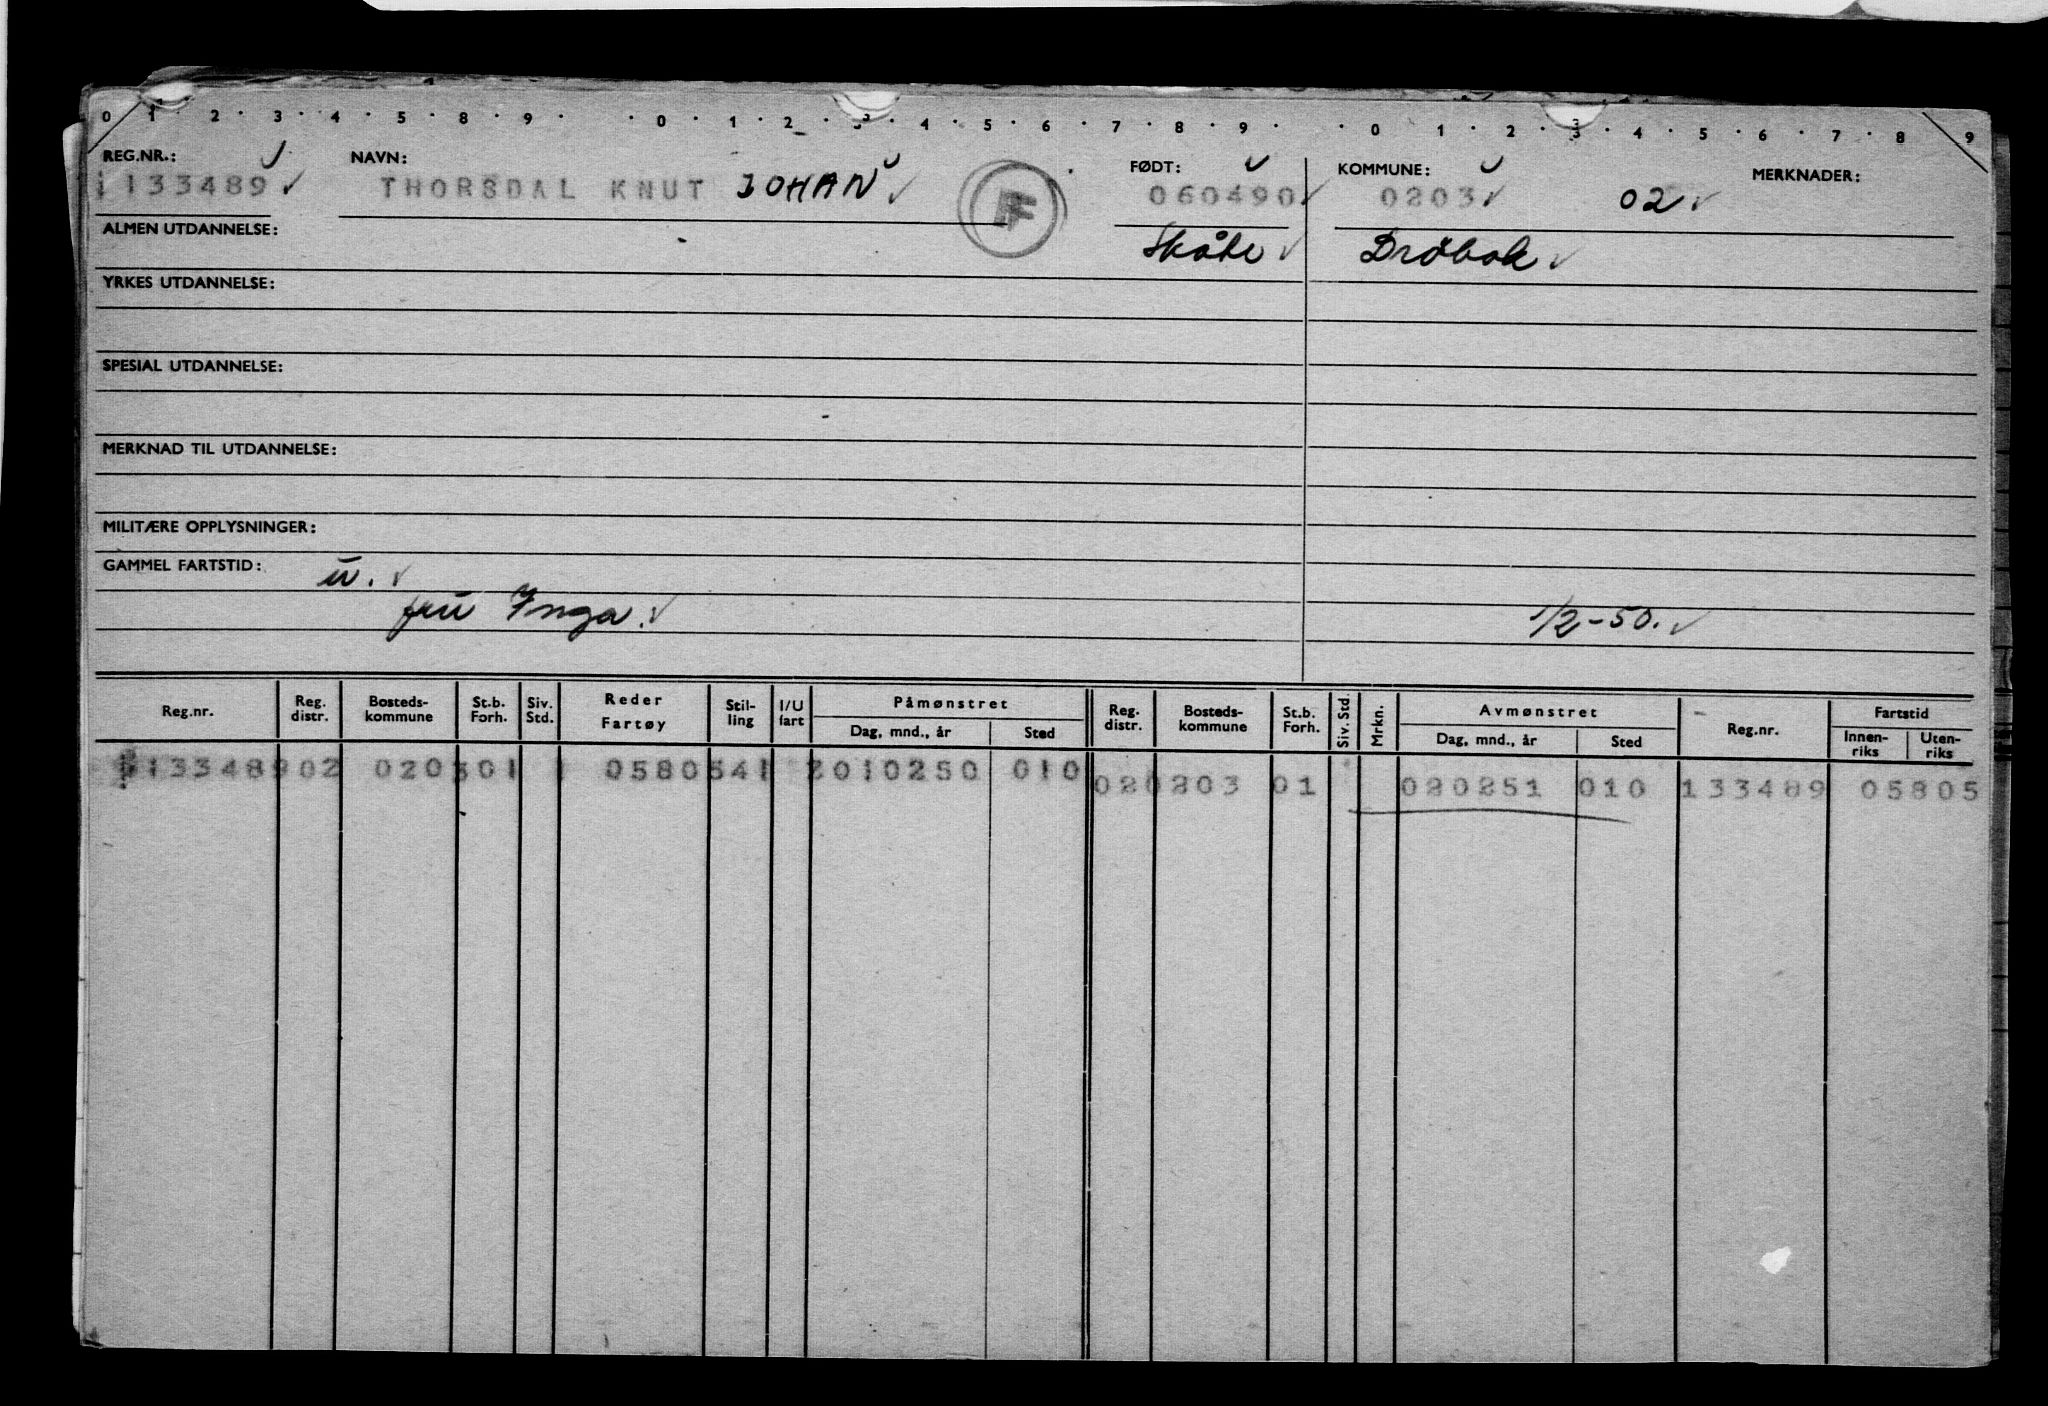 0 1 2 3 4 5 8 9 0 1 2 3 4 5 6 7 8 9 0 1 2 3 4 5 6 7 8 9
REG.NR.: NAVN: FØDT: KOMMUNE: MERKNADER:
133489 THORSDAL KNUT JOHAN 060490 0203 02
ALMEN UTDANNELSE: Dröbak
YRKES UTDANNELSE:
SPESIAL UTDANNELSE:
MERKNAD TIL UTDANNELSE:
MILITÆRE OPPLYSNINGER:
GAMMEL FARTSTID: u.
fru Inga. 1/2-50.
Reg.nr. Reg. distr. Bosteds-kommune St.b. Forh. Siv. Std. Reder Fartøy Stil-ling I/U fart Påmønstret Dag, mnd., år Sted Reg. distr. Bosteds-kommune St.b. Forh. Siv. Std. Mrkn. Avmønstret Dag, mnd., år Sted Reg.nr. Fartstid Innen-riks Uten-riks
133489 02 0203 01 1 0580 541 2 010250 010 02 0203 01 020251 010 133489 05805